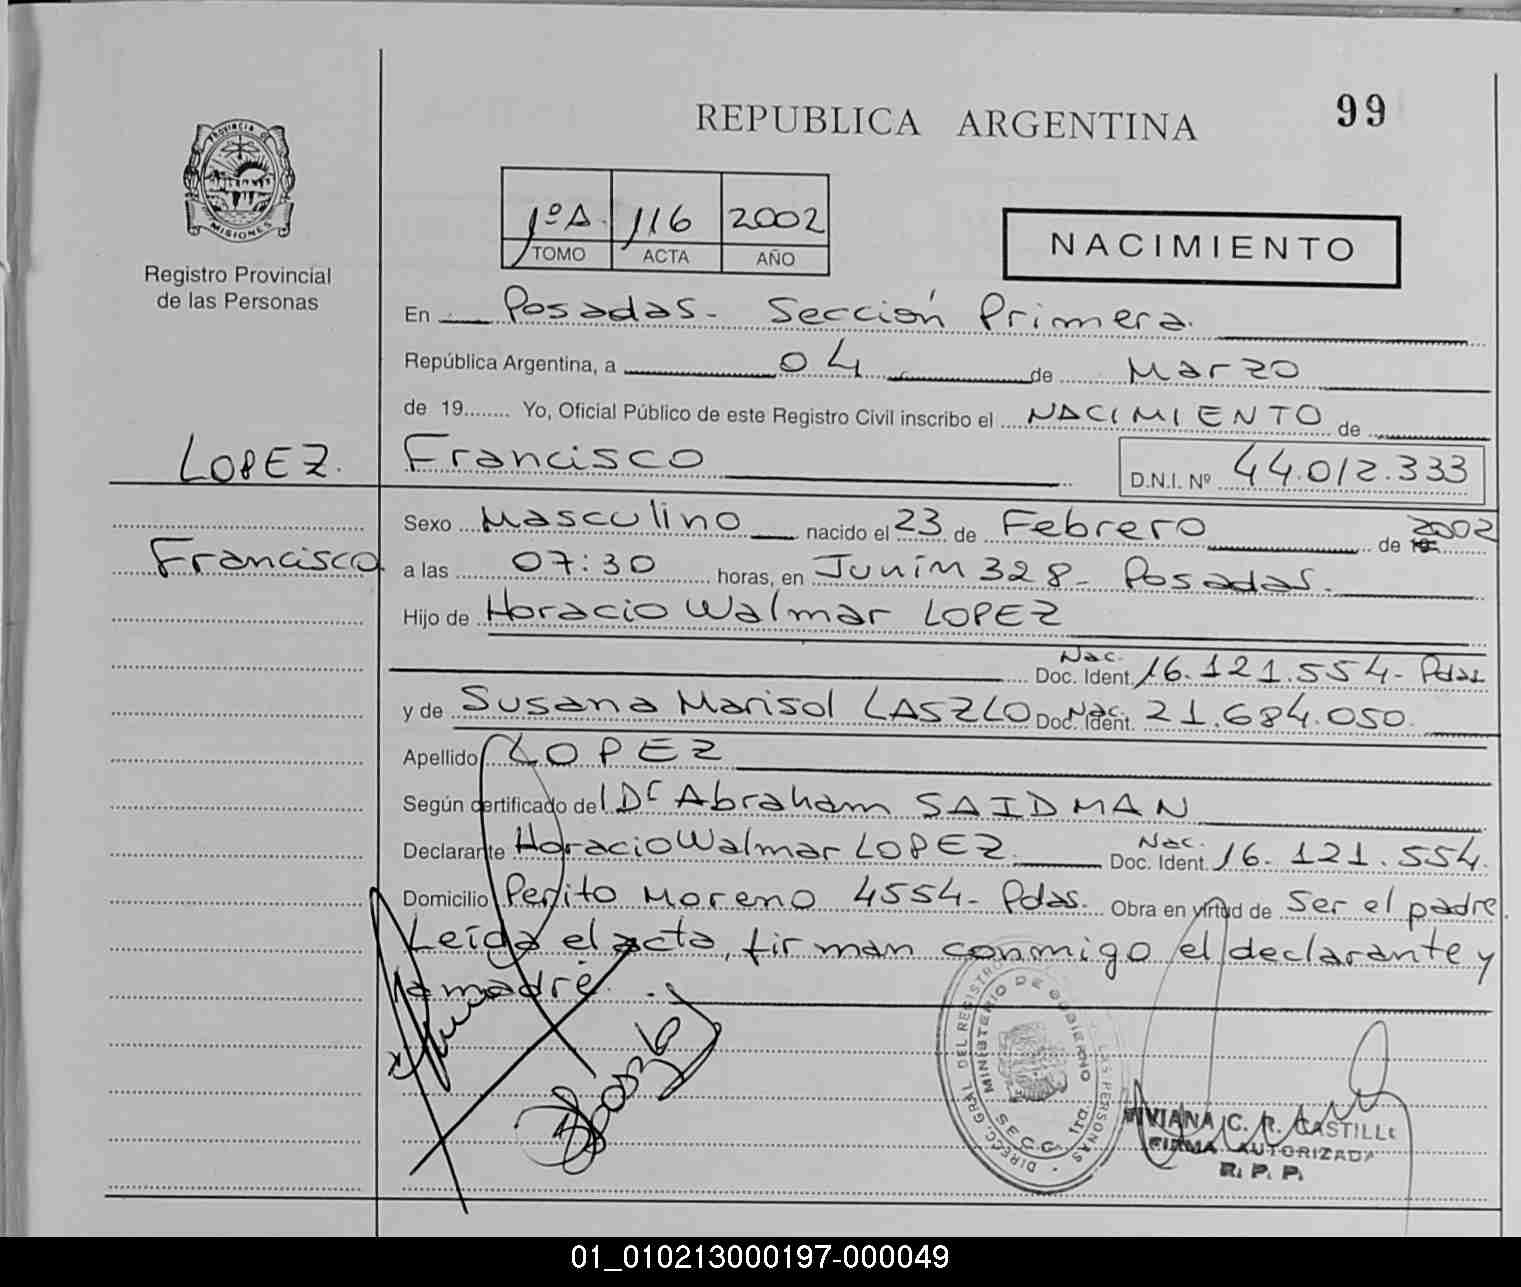 99
REPUBLICA ARGENTINA
PROVINCIA DE
MISIONES
Registro Provincial
de las Personas
1º A 116 2002
TOMO ACTA AÑO
NACIMIENTO
En Posadas - Sección Primera.
República Argentina, a 04 de Marzo
de 19........ Yo, Oficial Público de este Registro Civil inscribo el NACIMIENTO de
LOPEZ. Francisco D.N.I. Nº 44.012.333
Sexo Masculino nacido el 23 de Febrero de 2002
Francisco a las 07:30 horas, en Junín 328 - Posadas.
Hijo de Horacio Walmar LOPEZ
Nac.
Doc. Ident. 16.121.554 - Pdas
y de Susana Marisol LASZLO Doc. Ident. Nac. 21.684.050.
Apellido LOPEZ
Según certificado del Dr Abraham SAIDMAN
Declarante Horacio Walmar LOPEZ Nac. Doc. Ident. 16.121.554.
Domicilio Perito Moreno 4554 - Pdas. Obra en virtud de ser el padre.
Leída el acta, firman conmigo el declarante y
la madre.
DIRECC. GRAL. DEL REGISTRO LAS PERSONAS
MINISTERIO DE GOBIERNO
SECC. 1ra.
VIVIANA C. R. CASTILLO
FIRMA AUTORIZADA
R. P. P.
01_010213000197-000049